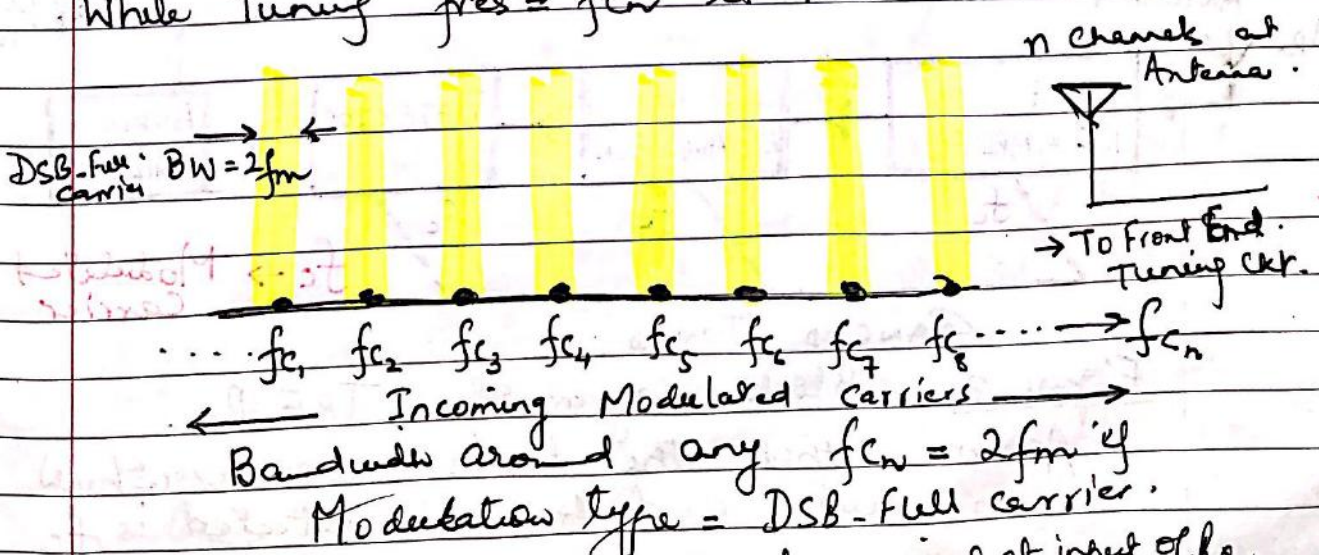 While Tuning fres = fcn
n Channels at
Antenna.
DSB-Full. BW = 2fm
Carrier
→ To Front End.
Tuning Ckt.
.... fc1 fc2 fc3 fc4 fc5 fc6 fc7 fc8 ..... → fcn
← Incoming Modulated Carriers →
Bandwidth around any fcn = 2fm if
Modulation type = DSB-Full carrier.
at input of